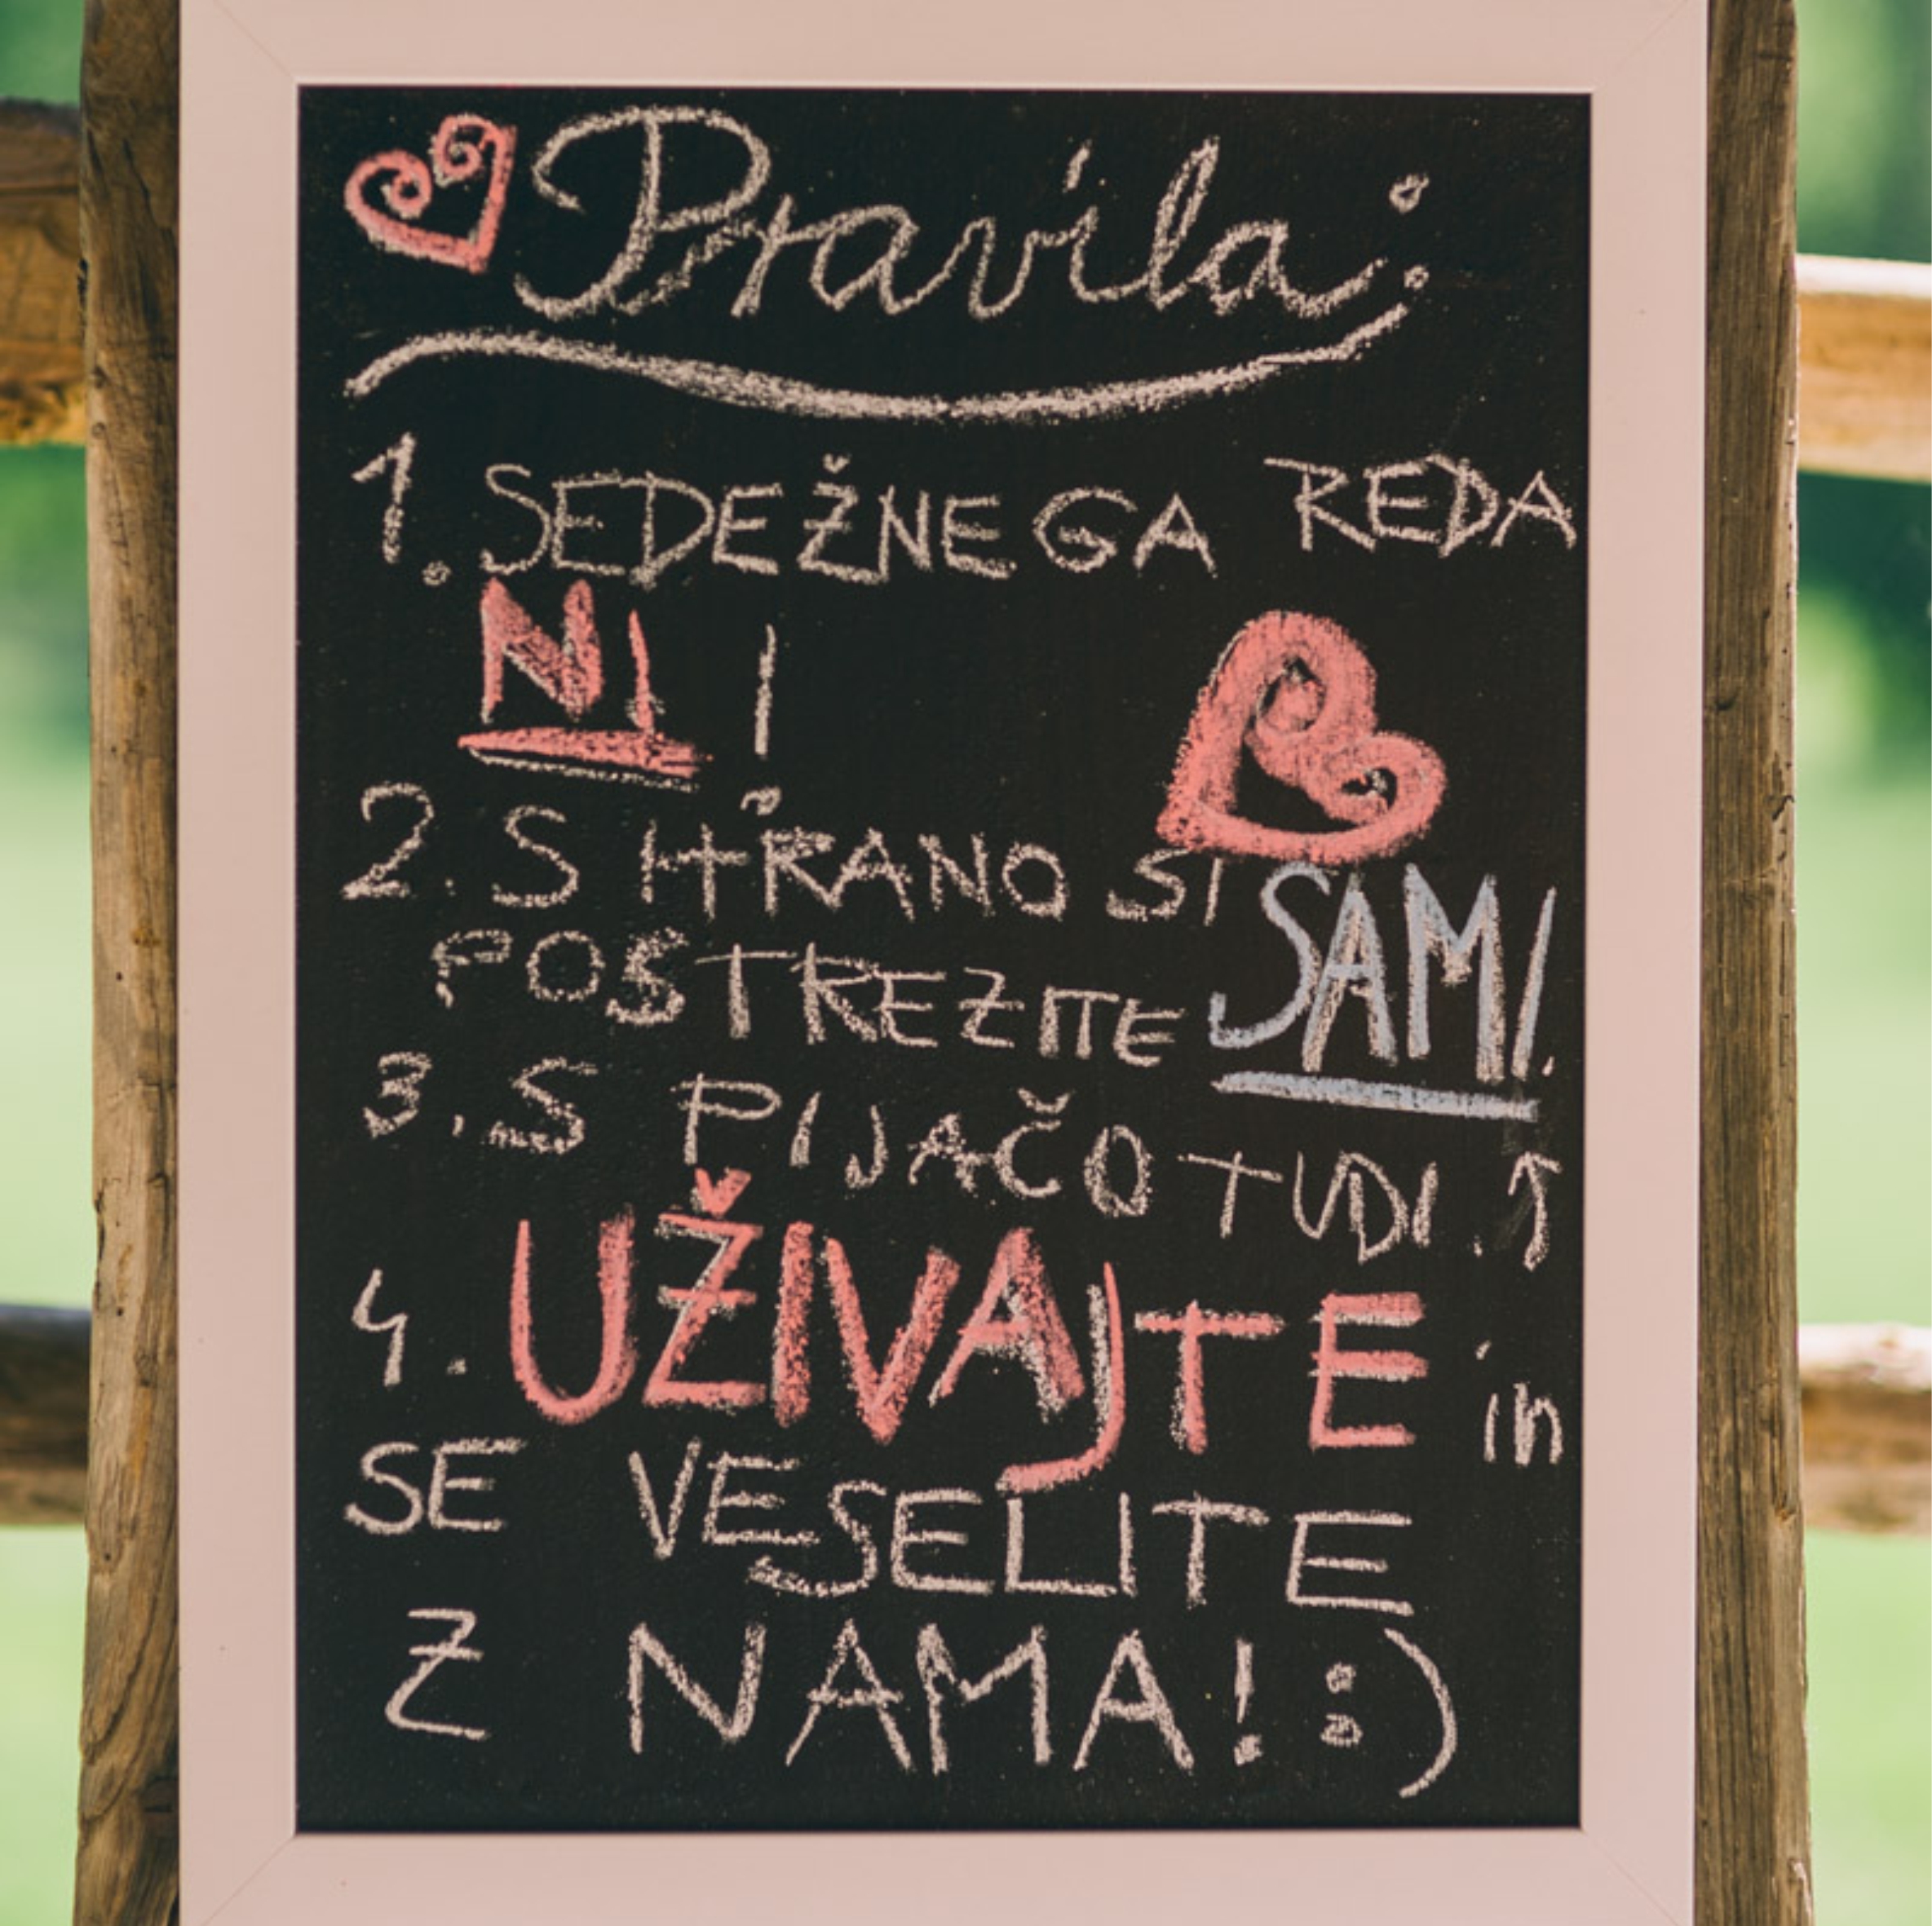 Pravila:
1. SEDEŽNEGA REDA
NI!
2. S HRANO SI SAMI.
POSTREZITE
3. S PIJAČO TUDI. ↑
4. UŽIVAJTE in
SE VESELITE
Z NAMA! :)